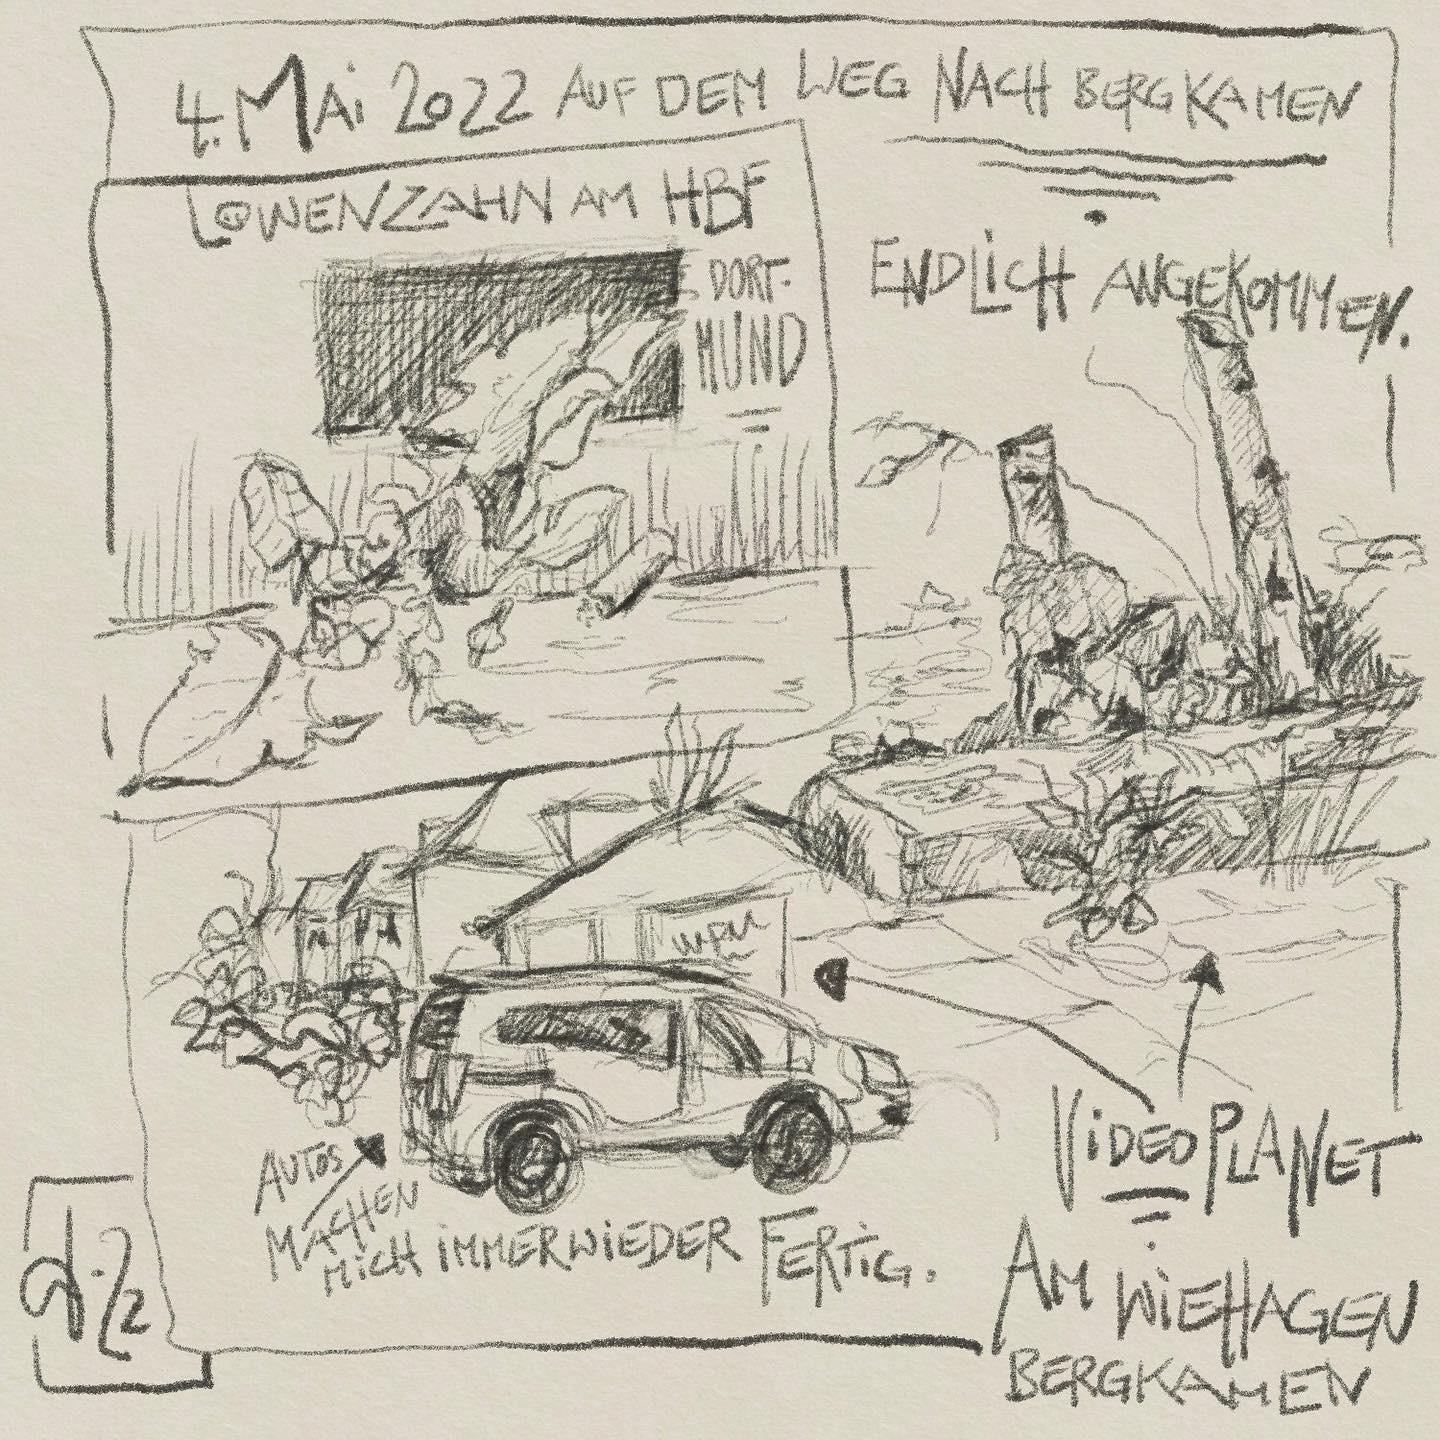 4. MAi 2022 AUF DEM WEG NACH BERGKAMEN
LÖWENZAHN AM HBF
DORT-
MUND
ENDLiCH ANGEKOMMEN.
AUTOS
MACHEN
MiCH iMMER WiEDER FERTiG.
ViDEOPLANET
AM WiEHAGEN
BERGKAMEN